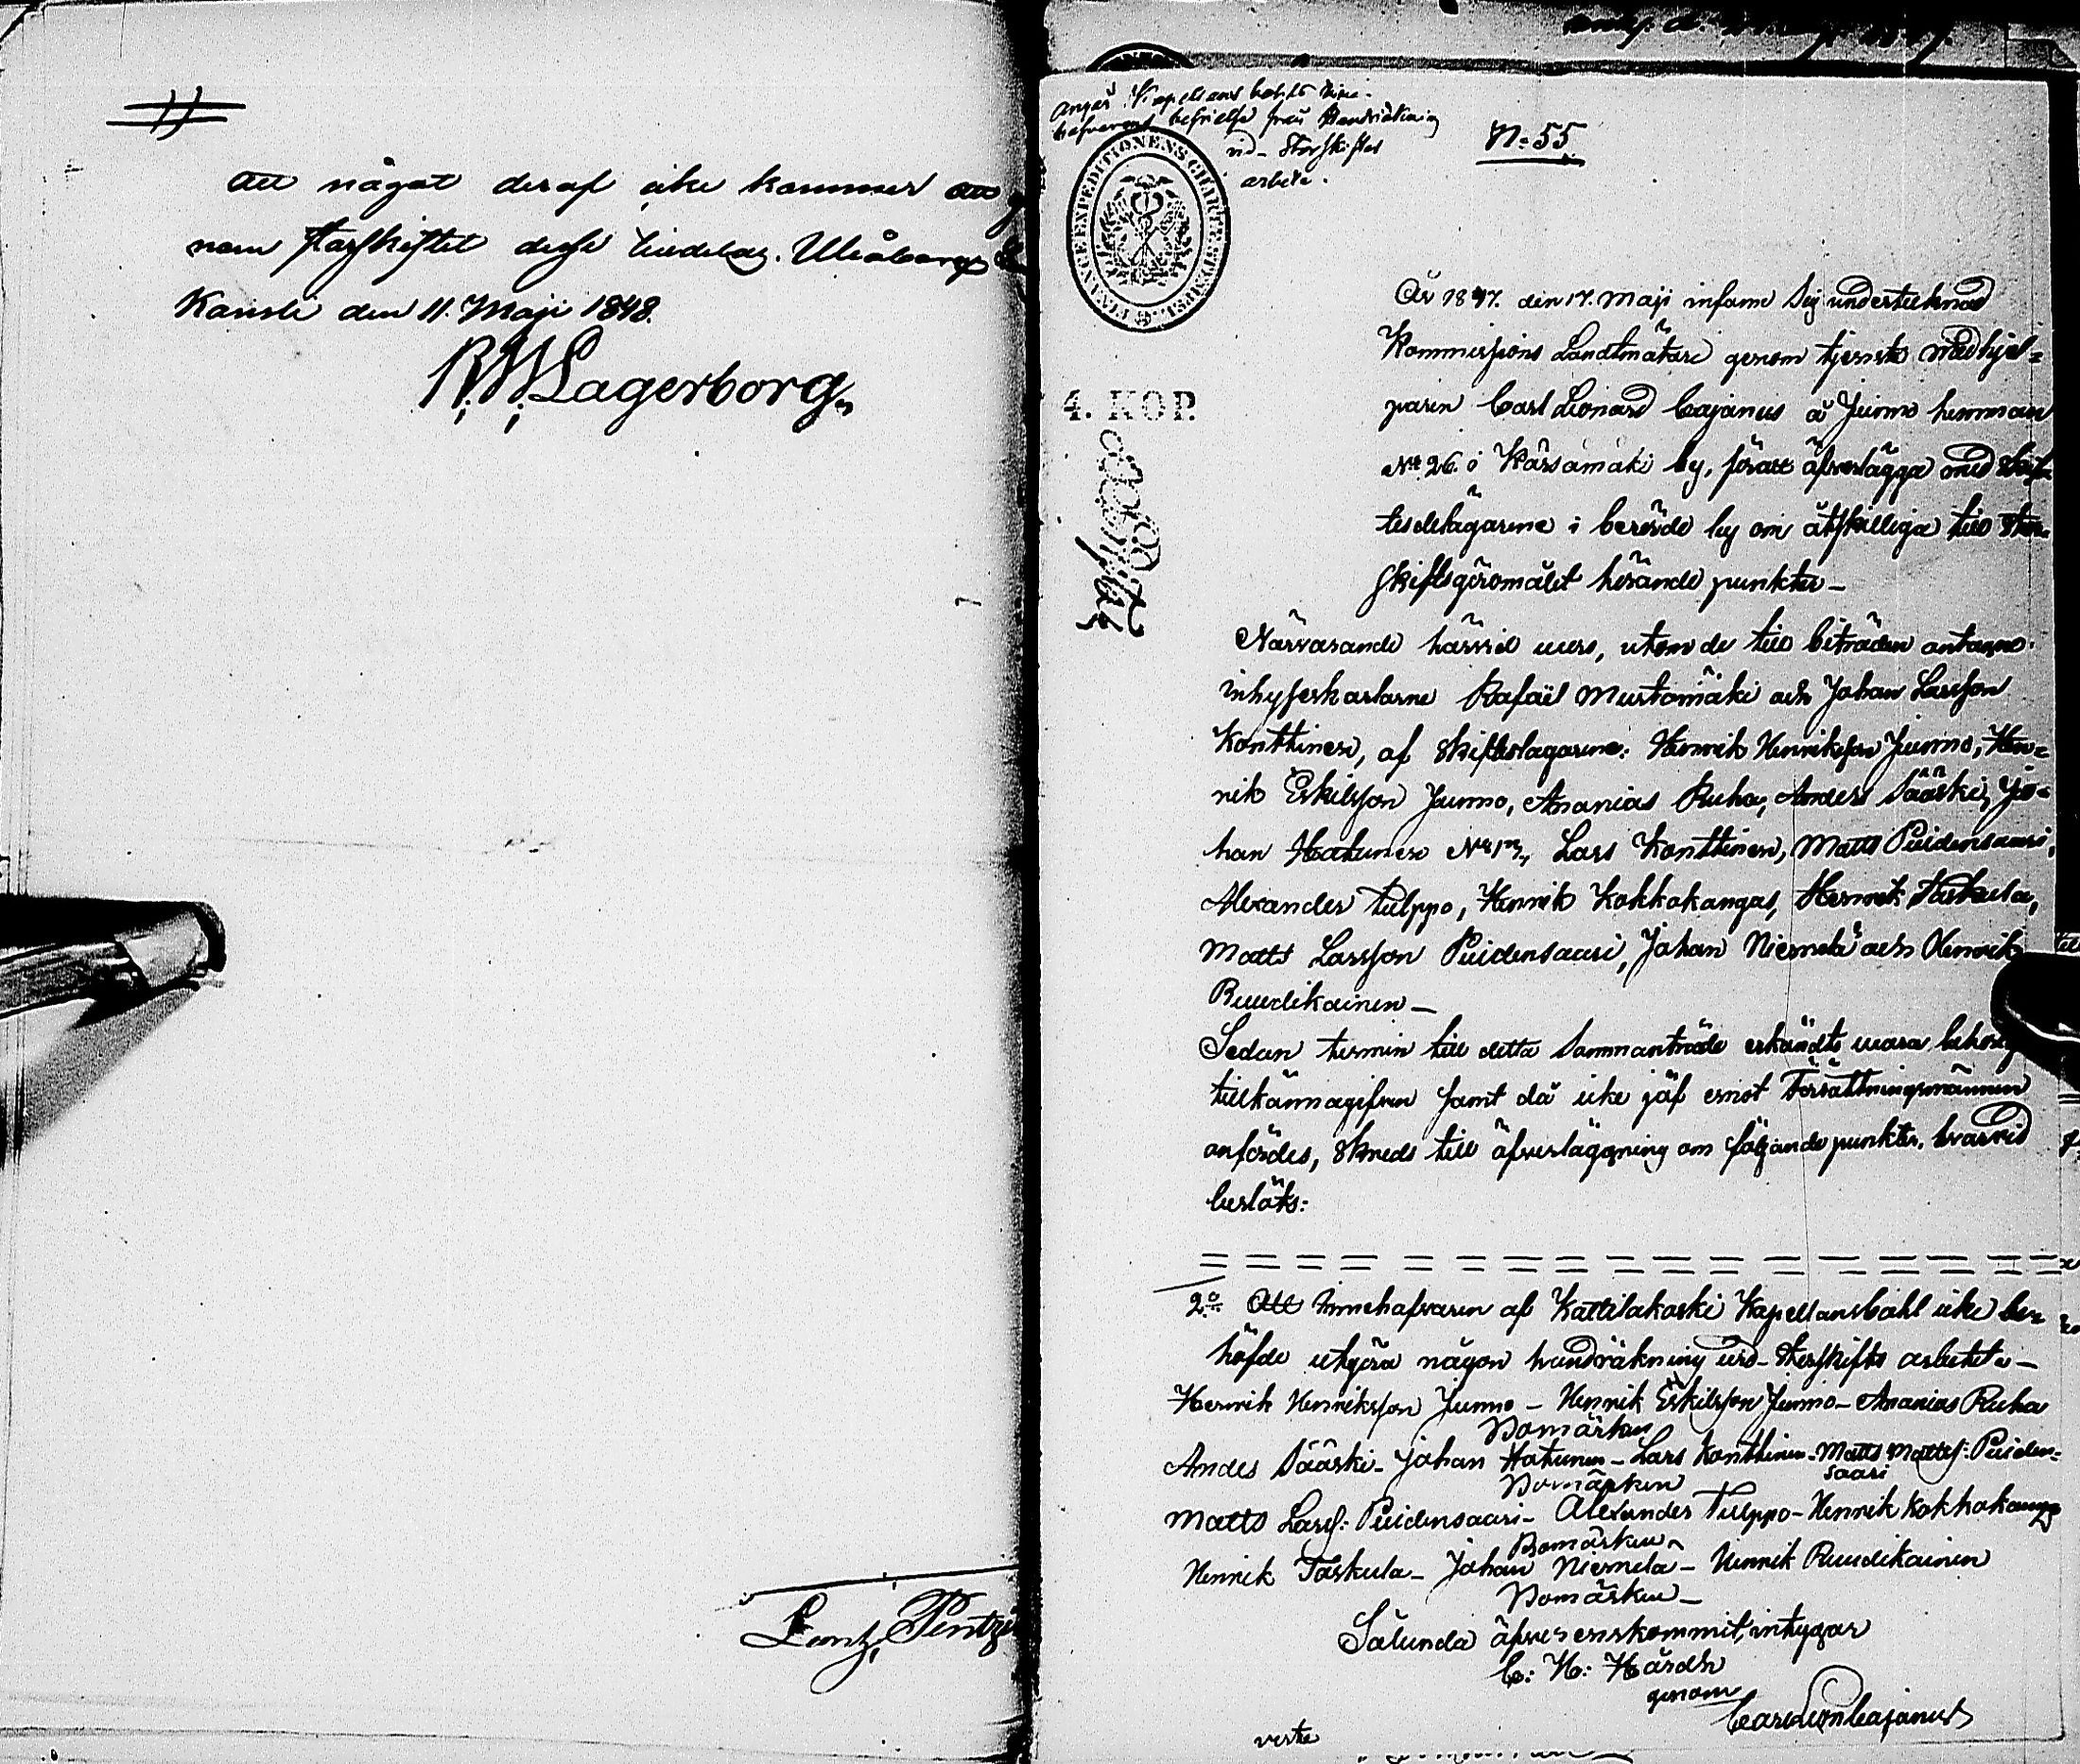 att något deraf icke kommer att
nom storskiftet desse tilldelas. Uleåborgs
Kansli den 11. Maji 1848.
R W Lagerborg
Lentz, Pentzin
anger Kapellans bohls
befrielse från Handräkning
vid Storskiftes
arbete.
No 55
FINANCE EXPEDITIONENS CHARTÆ
4. KOP.
År 1847. den 17. Maji infann sig undertecknad
Kommissions Landtmätare genom tjenste medhjel=
paren Carl Leonard Cajanus å Junno hemman
No 26. i Kärsämäki by,föratt öfverlägga med Skif=
tesdelägarene i berörde by om åtskilliga till Stor=
skiftsgöromålet hörande punkter —
Närvarande härvid voro, utom de till biträden antagne
inhyseskarlarne Rafaël Mustomäki och Johan Larsson
Konttinen, af Skifteslagarene: Henrik Henriksson Junno, Hen=
rik Eskilsson Junno, Ananias Ruha, Anders Sääski, Jo=
han Hatunen No 17, Lars Konttinen, Matts Puidensaari,
Alexander Tulppo, Henrik Kokkokangas, Henrik Taskula,
Matts Larsson Puidensaari, Johan Niemelä och Henrik
Ruudikainen —
Sedan termin till detta Sammanträde erkändts vara
tillkännagifven samt då icke jäf emot Förrättningsmännen
anfördes, skreds till öfverläggning om följande punkter, hvarvid
beslöts:
2o Att innehafvaren af Kattilakoski Kapellansbohl icke be=
höfde utgöra någon handräkning vid Storskifts arbetet. —
Henrik Henriksson Junno — Henrik Eskilsson Junno — Ananias Ruha
Bomärken
Anders Sääski — Johan Hatunen — Lars Konttinen — Matts Mattss: Puiden=
saari
Bomärken
Matts Larss: Puidensaari — Alexander Tulppo — Henrik Kokkokangas
Bomärken
Henrik Taskula — Johan Niemelä — Henrik Ruudikainen
Bomärken —
Sålunda öfverenskommit, intygar
C: H: Hårdh
genom
Carl Leon Cajanus